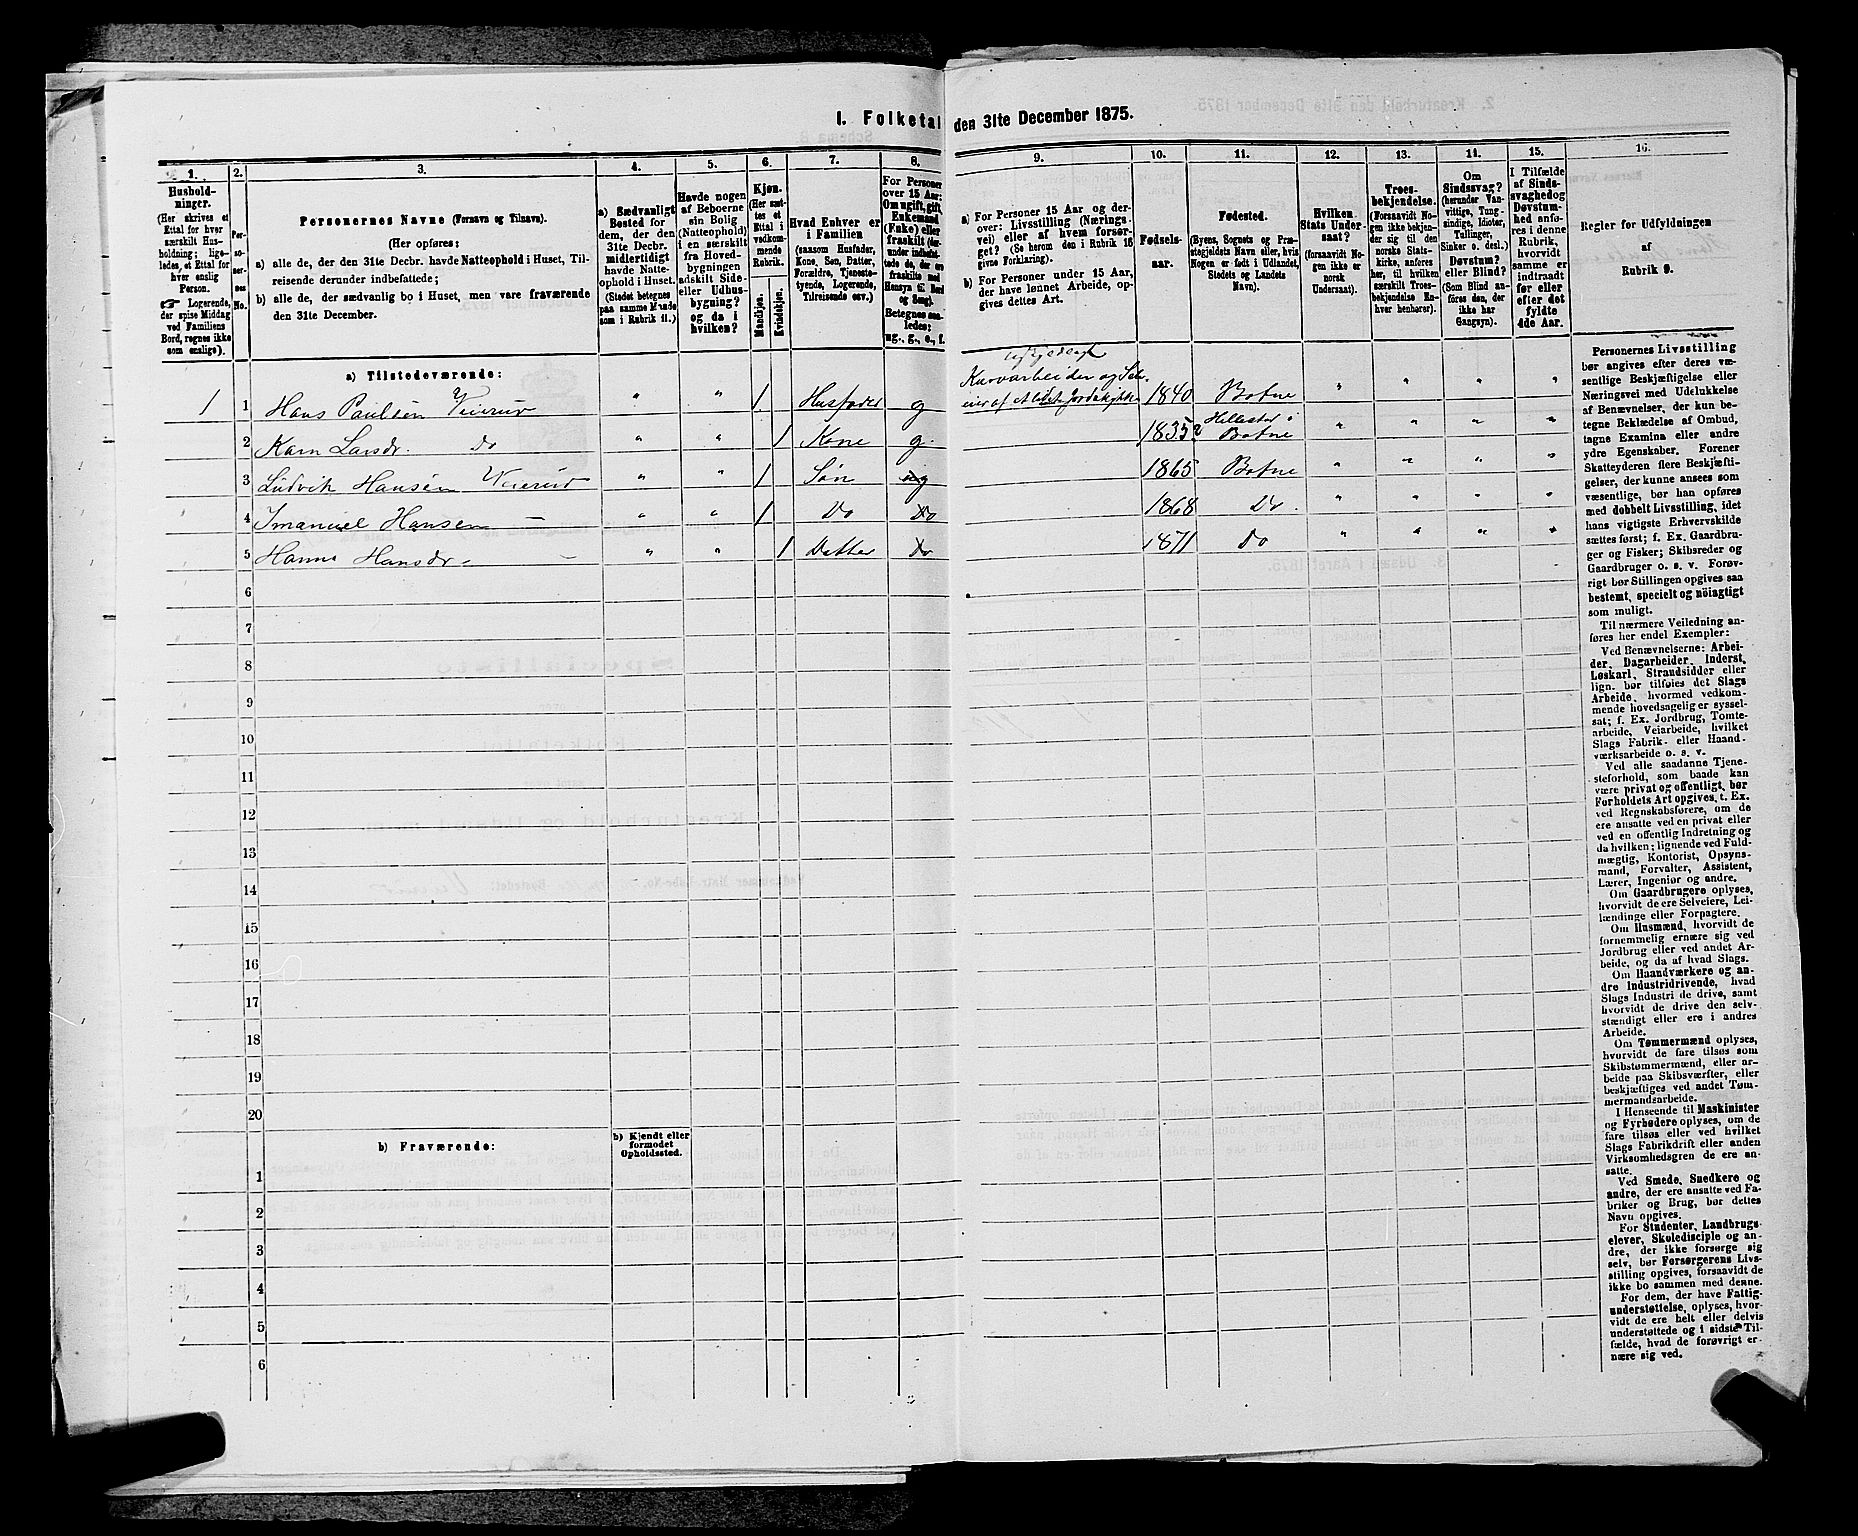 I. Folketal den 31te December 1875.
1. 2. 3. 4. 5. 6. 7. 8. 9. 10. 11. 12. 13. 14. 15. 16.
Hushold-
ninger.
(Her skrives et
Ettal for hver
særskilt Hus-
holdning; lige-
ledes et Ettal for
hver enslig
Person.
☞ Logerende,
der spise Middag
ved Familiens
Bord, regnes ikke
som enslige).
Per-
so-
ner-
nes
No.
Personernes Navne (Fornavn og Tilnavn).
(Her opføres:
a) alle de, der den 31te Decbr. havde Natteophold i Huset, Til-
reisende derunder indbefattede;
b) alle de, der sædvanlig bo i Huset, men vare fraværende
den 31te December.
a) Sædvanligt
Bosted for
dem, der den
31te Decbr.
midlertidigt
havde Natte-
ophold i Huset.
(Stedet betegnes
paa samme Maade
som i Rubrik 11.)
Havde nogen
af Beboerne
sin Bolig
(Natteophold)
i en særskilt
fra Hoved-
bygningen
adskilt Side-
eller Udhus-
bygning?
og da i
hvilken?
Kjøn.
(Her sæt-
tes et
Ettal i
vedkom-
mende
Rubrik.
Mandkjøn.
Kvindekjøn.
Hvad Enhver er
i Familien
(saasom Husfader,
Kone, Søn, Datter,
Forældre, Tjeneste-
tyende, Logerende,
Tilreisende osv.)
For Personer
over 15 Aar:
Om ugift, gift,
Enkemand
(Enke) eller
fraskilt (der-
under indbefat-
tede de, der ere
fraskilte med
Hensyn til Bord
og Seng).
Betegnes saa-
ledes:
ug., g., e., f.
a) For Personer 15 Aar og der-
over: Livsstilling (Nærings-
vei) eller af hvem forsør-
get? (Se herom den i Rubrik 16
givne Forklaring).
b) For Personer under 15 Aar,
der have lønnet Arbeide, op-
gives dettes Art.
Fødsels-
aar.
Fødested.
(Byens, Sognets og Præ-
stegjeldets Navn eller, hvis
Nogen er født i Udlandet,
Stedets og Landets
Navn).
Hvilken
Stats Under-
saat?
(forsaavidt No-
gen ikke er
norsk
Undersaat).
Troes-
bekjendelse.
(Forsaavidt No-
gen ikke bekjen-
der sig til den
norske Stats-
kirke, anføres
her, til hvilken
særskilt Troes-
bekjendelse En-
hver henhører).
Om
Sindssvag?
(herunder Van-
vittige, Tung-
sindige, Idioter,
Tullinger,
Sinker o. desl.)
Døvstum?
eller Blind?
(Som Blind an-
føres den, der
ikke har
Gangsyn).
I Tilfælde
af Sinds-
svaghed og
Døvstum-
hed anfø-
res i denne
Rubrik,
hvorvidt
samme er
indtraadt
før eller
efter det
fyldte
4de Aar.
Regler for Udfyldningen
af
Rubrik 9.
a) Tilstedeværende:
1 1 Hans Paulsen Veierud " " 1 Husfader g 1840 Botne " " " "
2 Karn Larsdr. Do " " 1 Kone g. 1835 Hillestad i Botne " " " "
3 Ludvik Hansen Veierud " " 1 Søn ug 1865 Botne " " " "
4 Imanuel Hansen — " " 1 Do Do 1868 Do. " " " "
5 Hanna Hansdr. — " " 1 Datter Do 1871 Do " " " "
6
7
8
9
10
11
12
13
14
15
16
17
18
19
20
b) Fraværende:
b) Kjendt eller
formodet
Opholdssted.
1
2
3
4
5
6
Personernes Livsstilling
bør angives efter deres væ-
sentlige Beskjæftigelse eller
Næringsvei med Udelukkelse
af Benævnelser, der kun be-
tegne Beklædelse af Ombud,
tagne Examina eller andre
ydre Egenskaber. Forener
Skatteyderen flere Beskjæfti-
gelser, der kunne ansees som
væsentlige, bør han opføres
med dobbelt Livsstilling, idet
hans vigtigste Erhvervskilde
sættes først; f. Ex. Gaardbru-
ger og Fisker; Skibsreder og
Gaardbruger o. s. v. Forøv-
rigt bør Stillingen opgives saa
bestemt, specielt og nöiagtigt
som muligt.
Til nærmere Veiledning an-
føres her endel Exempler:
Ved Benævnelserne: Arbei-
der, Dagarbeider, Inderst,
Løskarl, Strandsidder eller
lign. bør tilføies det Slags
Arbeide, hvormed vedkom-
mende hovedsagelig er syssel-
sat; f. Ex. Jordbrug, Tomte-
arbeide, Veiarbeide, hvilket
Slags Fabrik- eller Haand-
værksarbeide o. s. v.
Ved alle saadanne Tjene-
steforhold, som baade kan
være privat og offentligt, bør
Forholdets Art opgives, t. Ex.
ved Regnskabsførere, om de
ere ansatte ved en privat eller
ved en offentlig Indretning og
da hvilken; lignende ved Fuld-
mægtig, Kontorist, Opsyns-
mand, Forvalter, Assistent,
Lærer, Ingeniør og andre.
Om Gaardbrugere oplyses,
hvorvidt de ere Selveiere, Lei-
lændinge eller Forpagtere.
Om Husmænd, hvorvidt de
fornemmelig ernære sig ved
Jordbrug eller ved andet Ar-
beide, og da af hvad Slags.
Om Haandværkere og an-
dre Industridrivende, hvad
Slags Industri de drive, samt
hvorvidt de drive den selv-
stændigt eller ere i andres
Arbeide.
Om Tømmermænd oplyses,
hvorvidt de fare tilsøs som
Skibstømmermænd, eller ar-
beide paa Skibsværfter, eller
beskjæftiges ved andet Tøm-
mermandsarbeide.
I Henseende til Maskinister
og Fyrbødere oplyses, om de
fare tilsøs eller ved hvilket
Slags Fabrikdrift eller anden
Virksomhedsgren de ere an-
satte.
Ved Smede, Snedkere og
andre, der ere ansatte ved Fa-
briker og Brug, bør dettes
Navn opgives.
For Studenter, Landbrugs-
elever, Skoledisciple og an-
dre, der ikke forsørge sig
selv, bør Forsørgerens Livs-
stilling opgives, forsaavidt de
ikke bo sammen med denne.
For dem, der have Fattig-
understøttelse, oplyses, hvor-
vidt de ere helt eller delvis
understøttede og i sidste Til-
fælde, hvad de forøvrigt er-
nære sig ved.